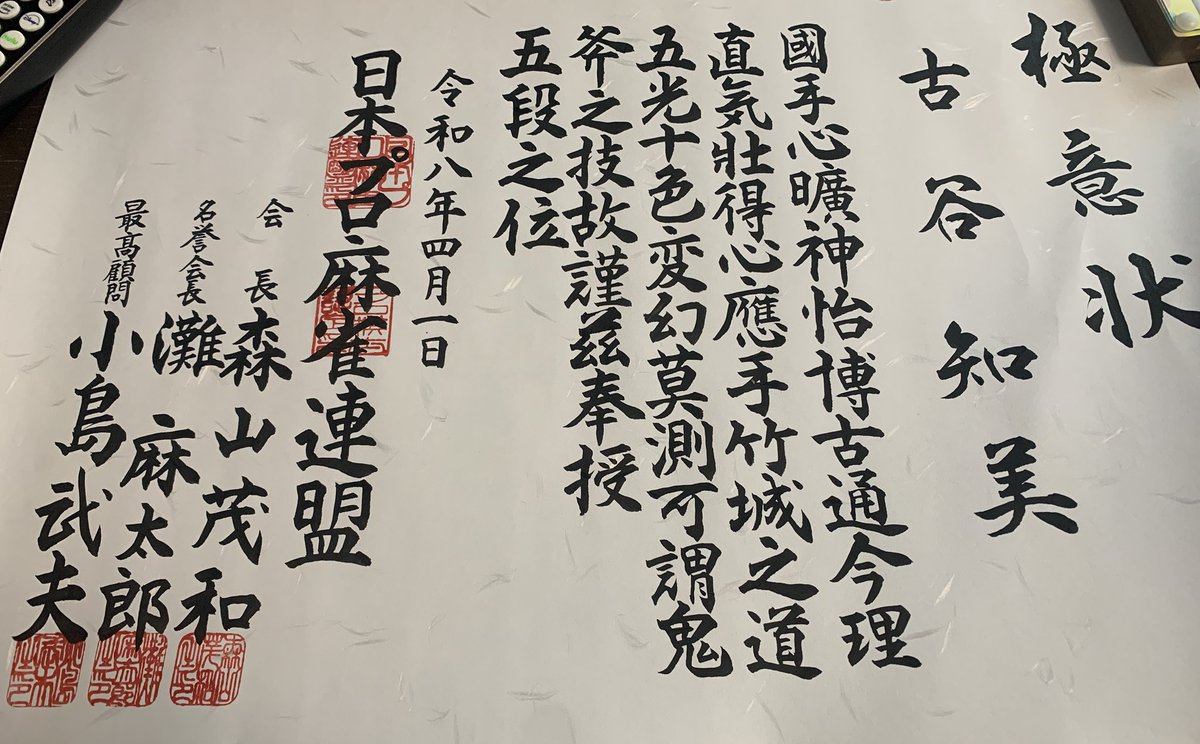 極意状
古谷知美
國手心曠神怡博古通今理
直気壮得心應手竹城之道
五光十色変幻莫測可謂鬼
斧之技故謹茲奉授
五段之位
令和八年四月一日
日本プロ麻雀連盟
会長 森山茂和
名誉会長 灘麻太郎
最高顧問 小島武夫